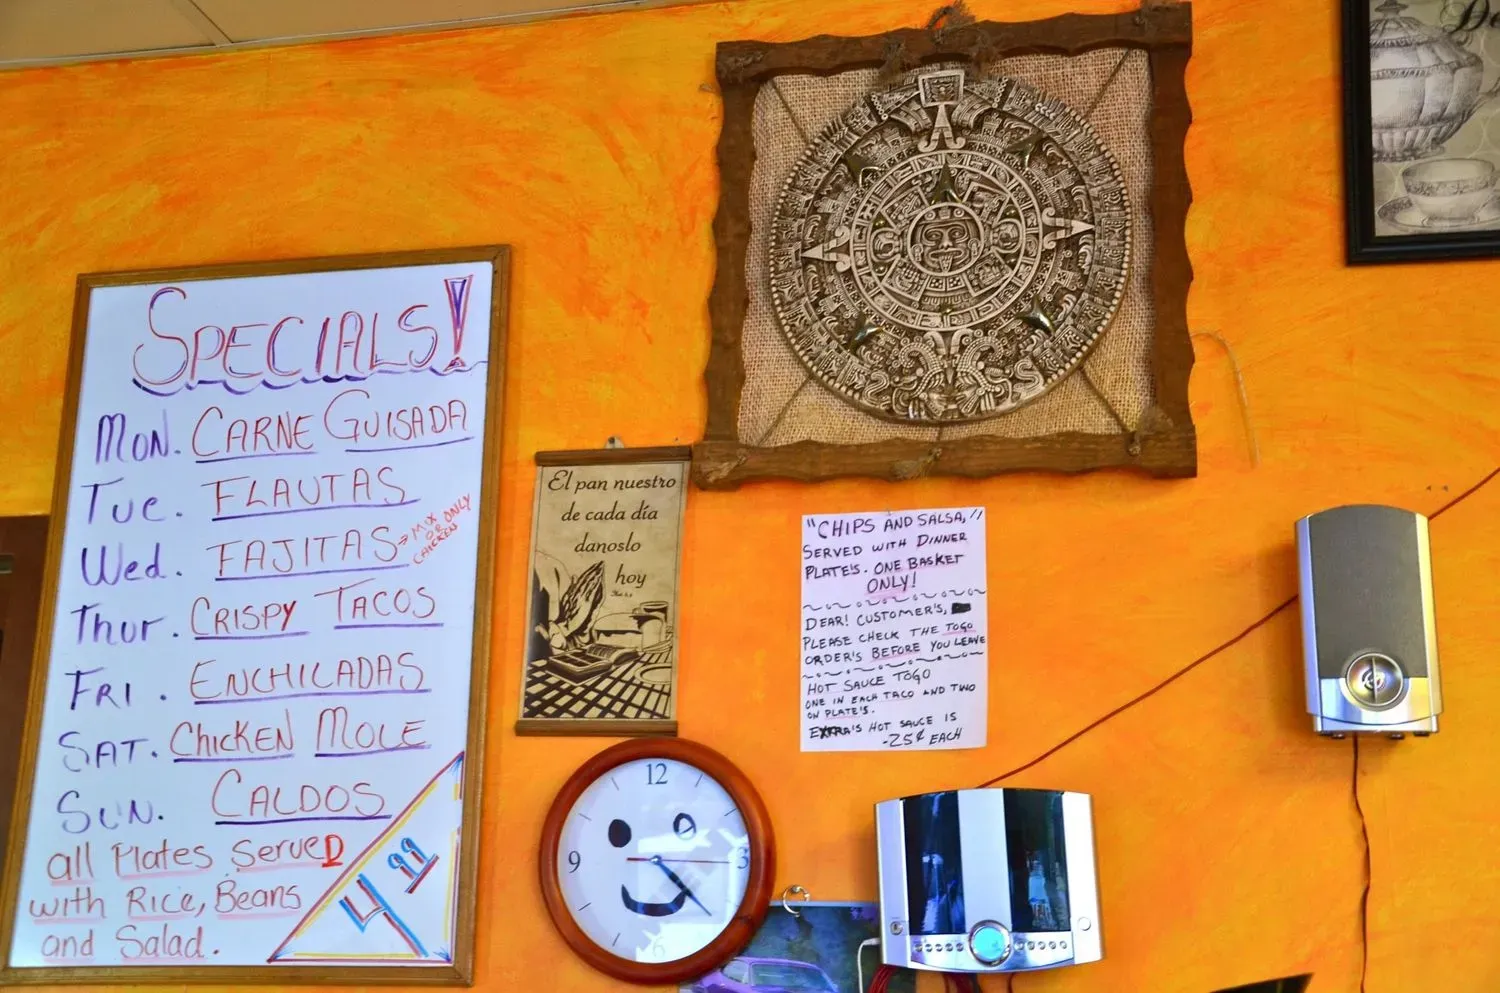 SPECIALS!
MON. CARNE GUISADA
Tue. FLAUTAS
Wed. FAJITAS → MIX
OR ONLY
CHICKEN
Thur. CRISPY TACOS
FRI. ENCHILADAS
SAT. CHICKEN MOLE
SUN. CALDOS
all Plates SERVED
with Rice, Beans
and Salad.
4.99
El pan nuestro
de cada día
danoslo
hoy
"CHIPS AND SALSA,"
SERVED WITH DINNER
PLATE'S. ONE BASKET
ONLY!
DEAR! CUSTOMER'S,
PLEASE CHECK THE TOGO
ORDER'S BEFORE YOU LEAVE
HOT SAUCE TOGO
ONE IN EACH TACO AND TWO
ON PLATE'S.
EXTRA'S HOT SAUCE IS
-25¢ EACH
12
9
3
6